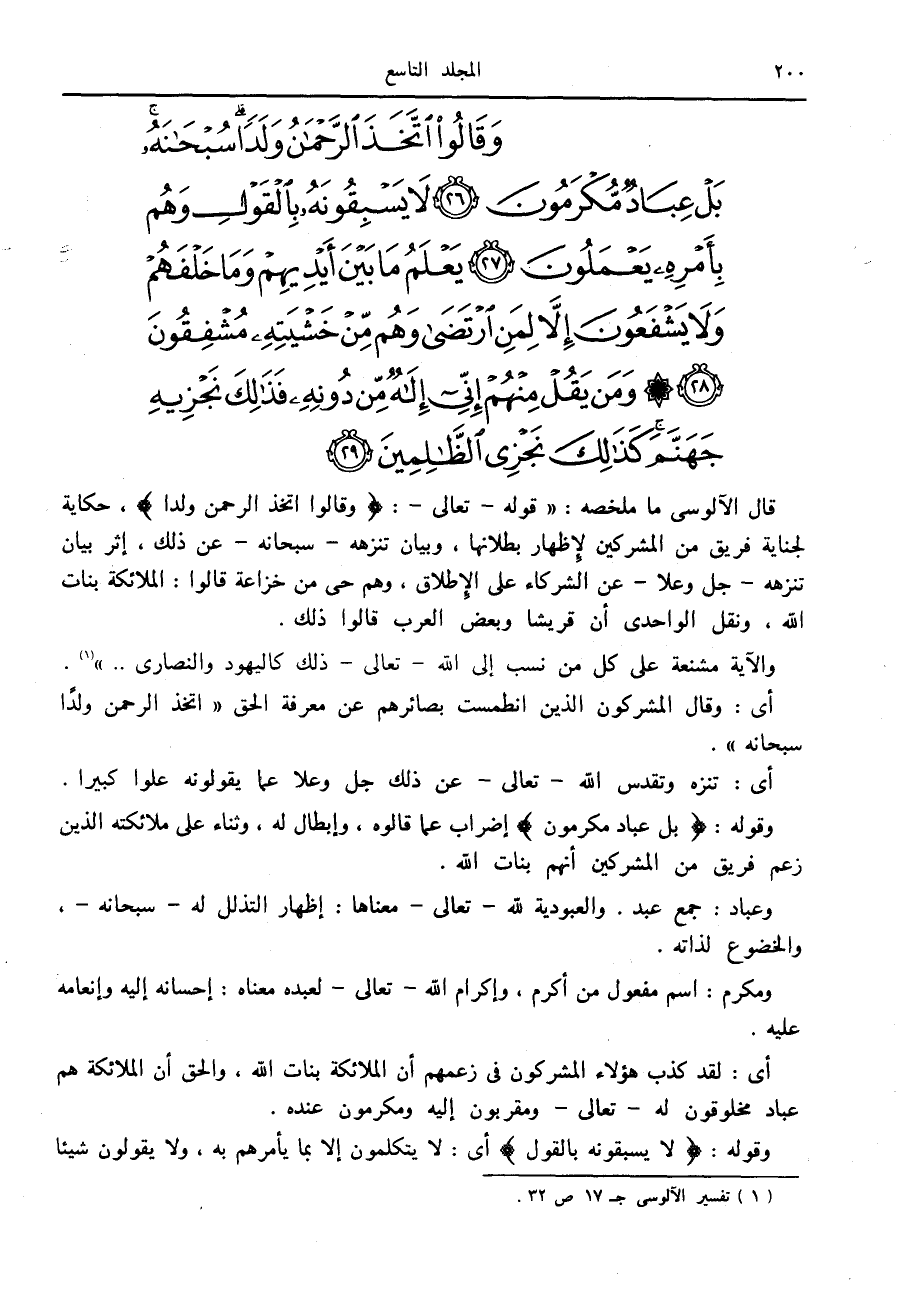 ٢٠٠ المجلد التاسع
وَقَالُوا۟ ٱتَّخَذَ ٱلرَّحْمَٰنُ وَلَدًا ۗ سُبْحَٰنَهُۥ ۚ
بَلْ عِبَادٌ مُّكْرَمُونَ ٢٦ لَا يَسْبِقُونَهُۥ بِٱلْقَوْلِ وَهُم
بِأَمْرِهِۦ يَعْمَلُونَ ٢٧ يَعْلَمُ مَا بَيْنَ أَيْدِيهِمْ وَمَا خَلْفَهُمْ
وَلَا يَشْفَعُونَ إِلَّا لِمَنِ ٱرْتَضَىٰ وَهُم مِّنْ خَشْيَتِهِۦ مُشْفِقُونَ
٢٨ ۞ وَمَن يَقُلْ مِنْهُمْ إِنِّىٓ إِلَٰهٌ مِّن دُونِهِۦ فَذَٰلِكَ نَجْزِيهِ
جَهَنَّمَ ۚ كَذَٰلِكَ نَجْزِى ٱلظَّٰلِمِينَ ٢٩
قال الآلوسى ما ملخصه : « قوله – تعالى – : ﴿ وقالوا اتخذ الرحمن ولدا ﴾ ، حكاية
لجناية فريق من المشركين لإِظهار بطلانها ، وبيان تنزهه – سبحانه – عن ذلك ، إثر بيان
تنزهه – جل وعلا – عن الشركاء على الإِطلاق ، وهم حى من خزاعة قالوا : الملائكة بنات
الله ، ونقل الواحدى أن قريشا وبعض العرب قالوا ذلك .
والآية مشنعة على كل من نسب إلى الله – تعالى – ذلك كاليهود والنصارى .. »(١) .
أى : وقال المشركون الذين انطمست بصائرهم عن معرفة الحق « اتخذ الرحمن ولدًا
سبحانه » .
أى : تنزه وتقدس الله – تعالى – عن ذلك جل وعلا عما يقولونه علوا كبيرا .
وقوله : ﴿ بل عباد مكرمون ﴾ إضراب عما قالوه ، وإبطال له ، وثناء على ملائكته الذين
زعم فريق من المشركين أنهم بنات الله .
وعباد : جمع عبد . والعبودية لله – تعالى – معناها : إظهار التذلل له – سبحانه – ،
والخضوع لذاته .
ومكرم : اسم مفعول من أكرم ، وإكرام الله – تعالى – لعبده معناه : إحسانه إليه وإنعامه
عليه .
أى : لقد كذب هؤلاء المشركون فى زعمهم أن الملائكة بنات الله ، والحق أن الملائكة هم
عباد مخلوقون له – تعالى – ومقربون إليه ومكرمون عنده .
وقوله : ﴿ لا يسبقونه بالقول ﴾ أى : لا يتكلمون إلا بما يأمرهم به ، ولا يقولون شيئا
( ١ ) تفسير الآلوسى جـ ١٧ ص ٣٢ .